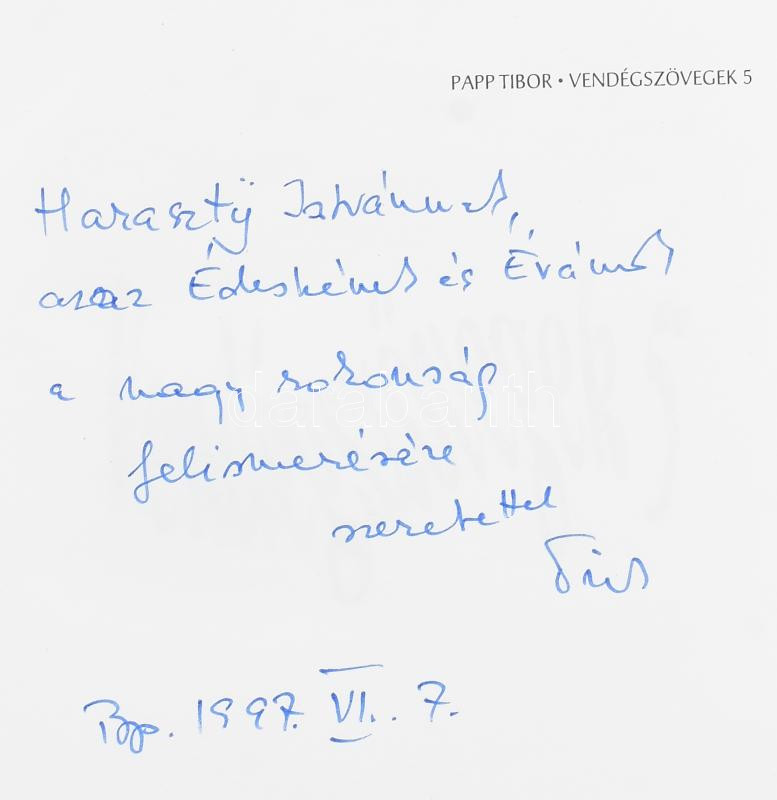 PAPP TIBOR • VENDÉGSZÖVEGEK 5
Harasztÿ Istvánnak,
azaz Édeskének és Évának
a nagy rokonság
darabanth
felismerésére
szeretettel
Bp. 1997. VI. 7.